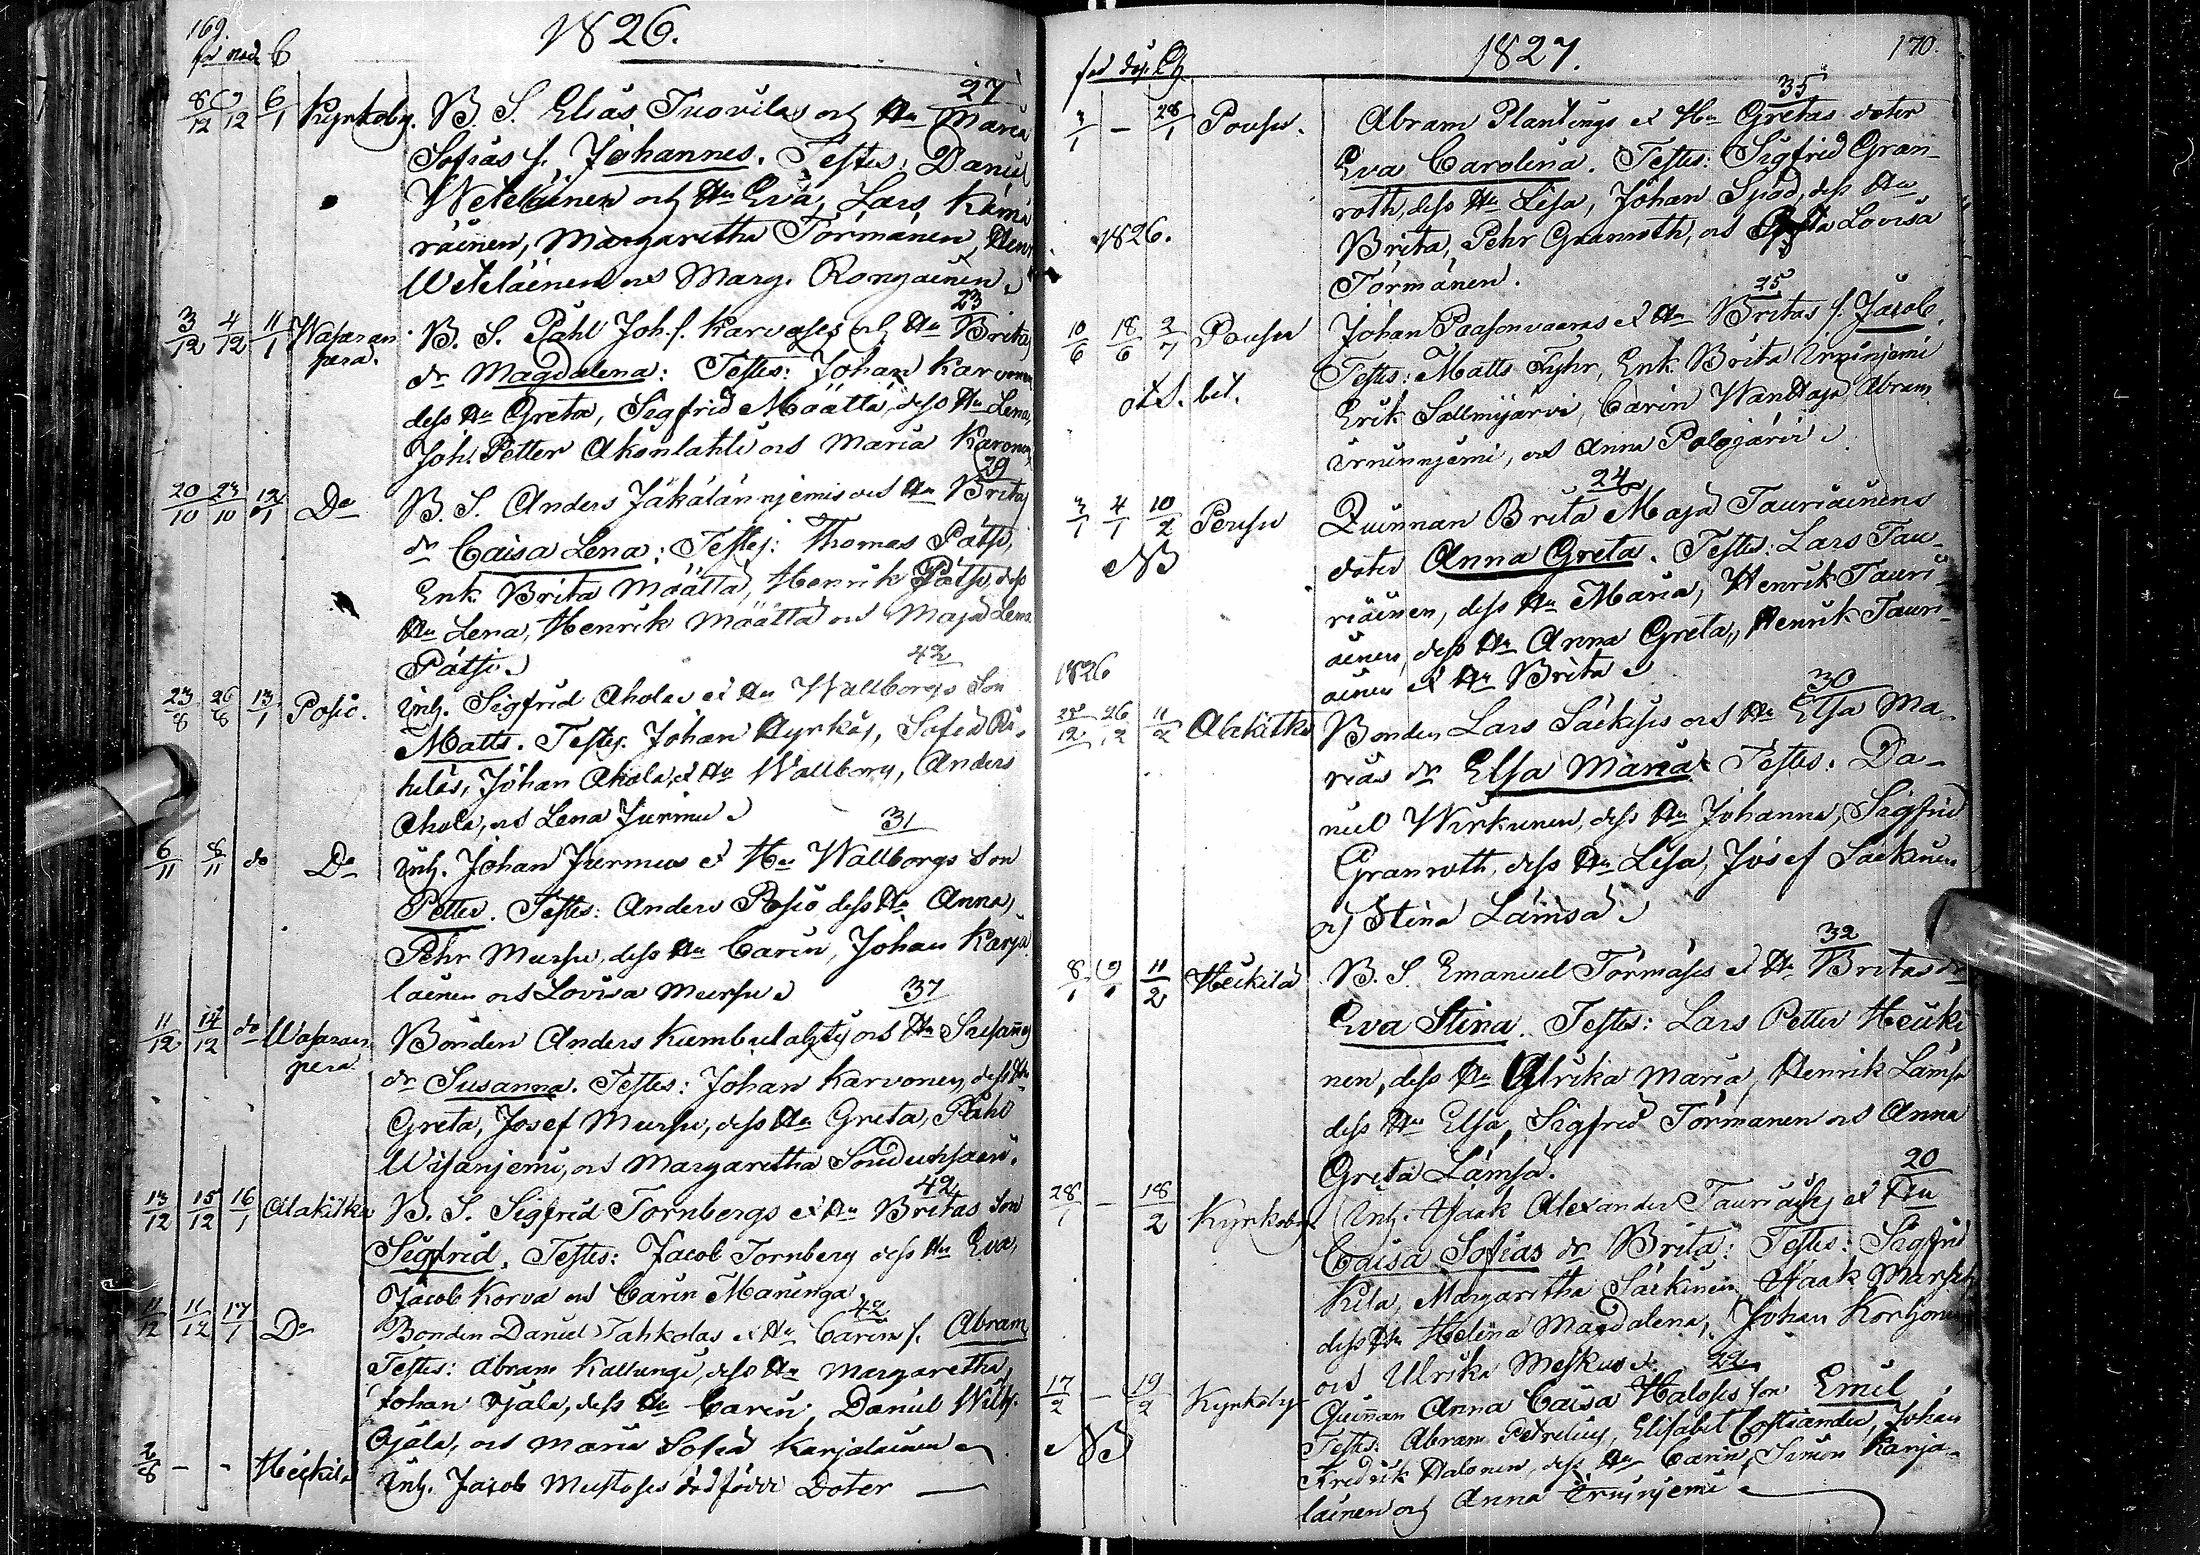 169.
1826.
8/12 9/12 6/1 Kyrkoby. B. S. Elias Tuovilas och Hu Maria 27
Sofias s. Johannes. Testes: Daniel
Weteläinen och Hu Eva, Lars Kämä
räinen, Margaretha Törmänen, Henr
Weteläinen och Marg. Rongainen
3/12 4/12 11/1 Wasaran B. S. Påhl Joh. s. Karvoses och Hu Britas 23
pera. dr Magdalena: Testes: Johan Karvonen
dess Hu Greta, Sigfrid Määttä, dess Hu Lena,
Joh. Petter Akonlahti och Maria Karvonen
20/10 23/10 12/1 Do B. S. Anders Jäkälänniemis och Hu Britas 29
dr Caisa Lena: Testes: Thomas Pätsi,
Enk. Brita Määttä, Henrik Pätsi, dess
Hu Lena, Henrik Määttä och Maja Lena
Pätsi.
23/8 26/8 13/1 Posio. Inh. Sigfrid Aholas et Hu Wallborgs Son 42
Matts. Testes: Johan Hyrkäs, Sofia
Johan Ahola, et Hu Wallborg, Anders
Ahola, och Lena Jurmu
6/11 8/11 do Do Inh. Johan Jurmus et Hu Wallborgs Son 31
Petter. Testes: Anders Posio dess Hu Anna,
Pehr Mursu, dess Hu Carin, Johan Karja
lainen och Lovisa Mursu
11/12 14/12 do Wasaran Bonden Anders och Hu Susannas 37
pera dr Susanna. Testes: Johan Karvonen, dess Hu
Greta, Josef Mursu, dess Hu Greta, Påhl
och Margaretha
13/12 15/12 16/1 Alakitka B. S. Sigfrid Tornbergs et Hu Britas Son 42
Sigfrid. Testes: Jacob Tornberg dess Hu Eva,
Jacob Korva och Carin Maninga
11/12 11/12 17/1 Do Bonden Daniel Tahkolas et Hu Carins s. Abram, 42
Testes: Abram Kallunge, dess Hu Margaretha,
Johan Ojala, dess Hu Carin, Daniel Wilh.
Ojala, och Maria Sofia Karjalainen
2/8 - - Heikilä Inh. Jacob Mustoses dödfödde Doter
1827. 170.
3/1 - 28/1 Pousu. Abram Plantings et Hu Gretas doter 35
Eva Carolina. Testes: Sigfrid Gran-
roth, dess Hu Lisa, Johan Sjöd, dess Hu
1826. Brita, Pehr Granroth, och Lovisa
Törmänen.
10/6 18/6 2/7 Pousu Johan Paasonvaaras et Hu Britas s. Jacob. 25
Testes: Matts Fyhr, Enk. Brita Irninjemi
Erik Sallmijärvi, Carin Abram
Irninnjemi, och Anna Palojärvi
3/1 4/1 10/2 Pousu Quinnan Brita Maja Tauriainens 24
NB doter Anna Greta. Testes: Lars Tau-
riainen, dess Hu Maria, Henrik Tauri-
ainen, dess Hu Anna Greta, Henrik Tauri-
1826 ainen et Hu Brita
26/12 11/2 Alakitka Bonden Lars Säckises och Hu Elsa Ma- 30
rias dr Elsa Maria. Testes: Da-
niel Wirkunen, dess Hu Johanna, Sigfrid
Granroth, dess Hu Lisa, Josef Säckinen
och Stina Lämsä
8/1 9/1 11/2 Heikilä B. S. Emanuel Törmäses et Hu Britas dr 32
Eva Stina. Testes: Lars Petter Heiki
nen, dess Hu Ulrika Maria, Henrik Lämsä
dess Hu Elsa, Sigfrid Törmänen och Anna
Greta Lämsä.
28/1 - 18/2 Kyrkoby Inh. Isaak Alexander Tauriaises et Hu 20
Caisa Sofias dr Brita: Testes: Sigfrid
Kila, Margaretha Säckinen, Isaak Mursu,
dess Hu Helena Magdalena, Johan Kortjonen
och Ulrika Meskus
17/2 - 19/2 Kyrkoby Quinnan Anna Caisa Haloses son Emil. 22
NB Testes: Abram Petrelius, Elisabet Costiander, Johan
Fredrik Halonen, dess Hu Carin, Simon Karja-
lainen och Anna Irninjemi